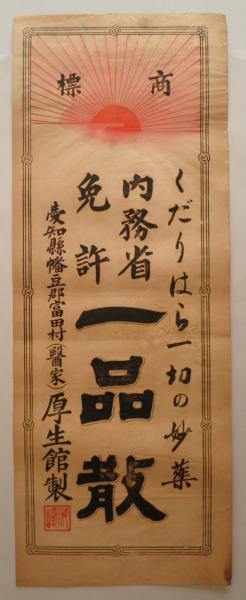 商標
くだりはら一切の妙薬
内務省
免許
一品散
愛知縣幡豆郡富田村(醫家)厚生館製